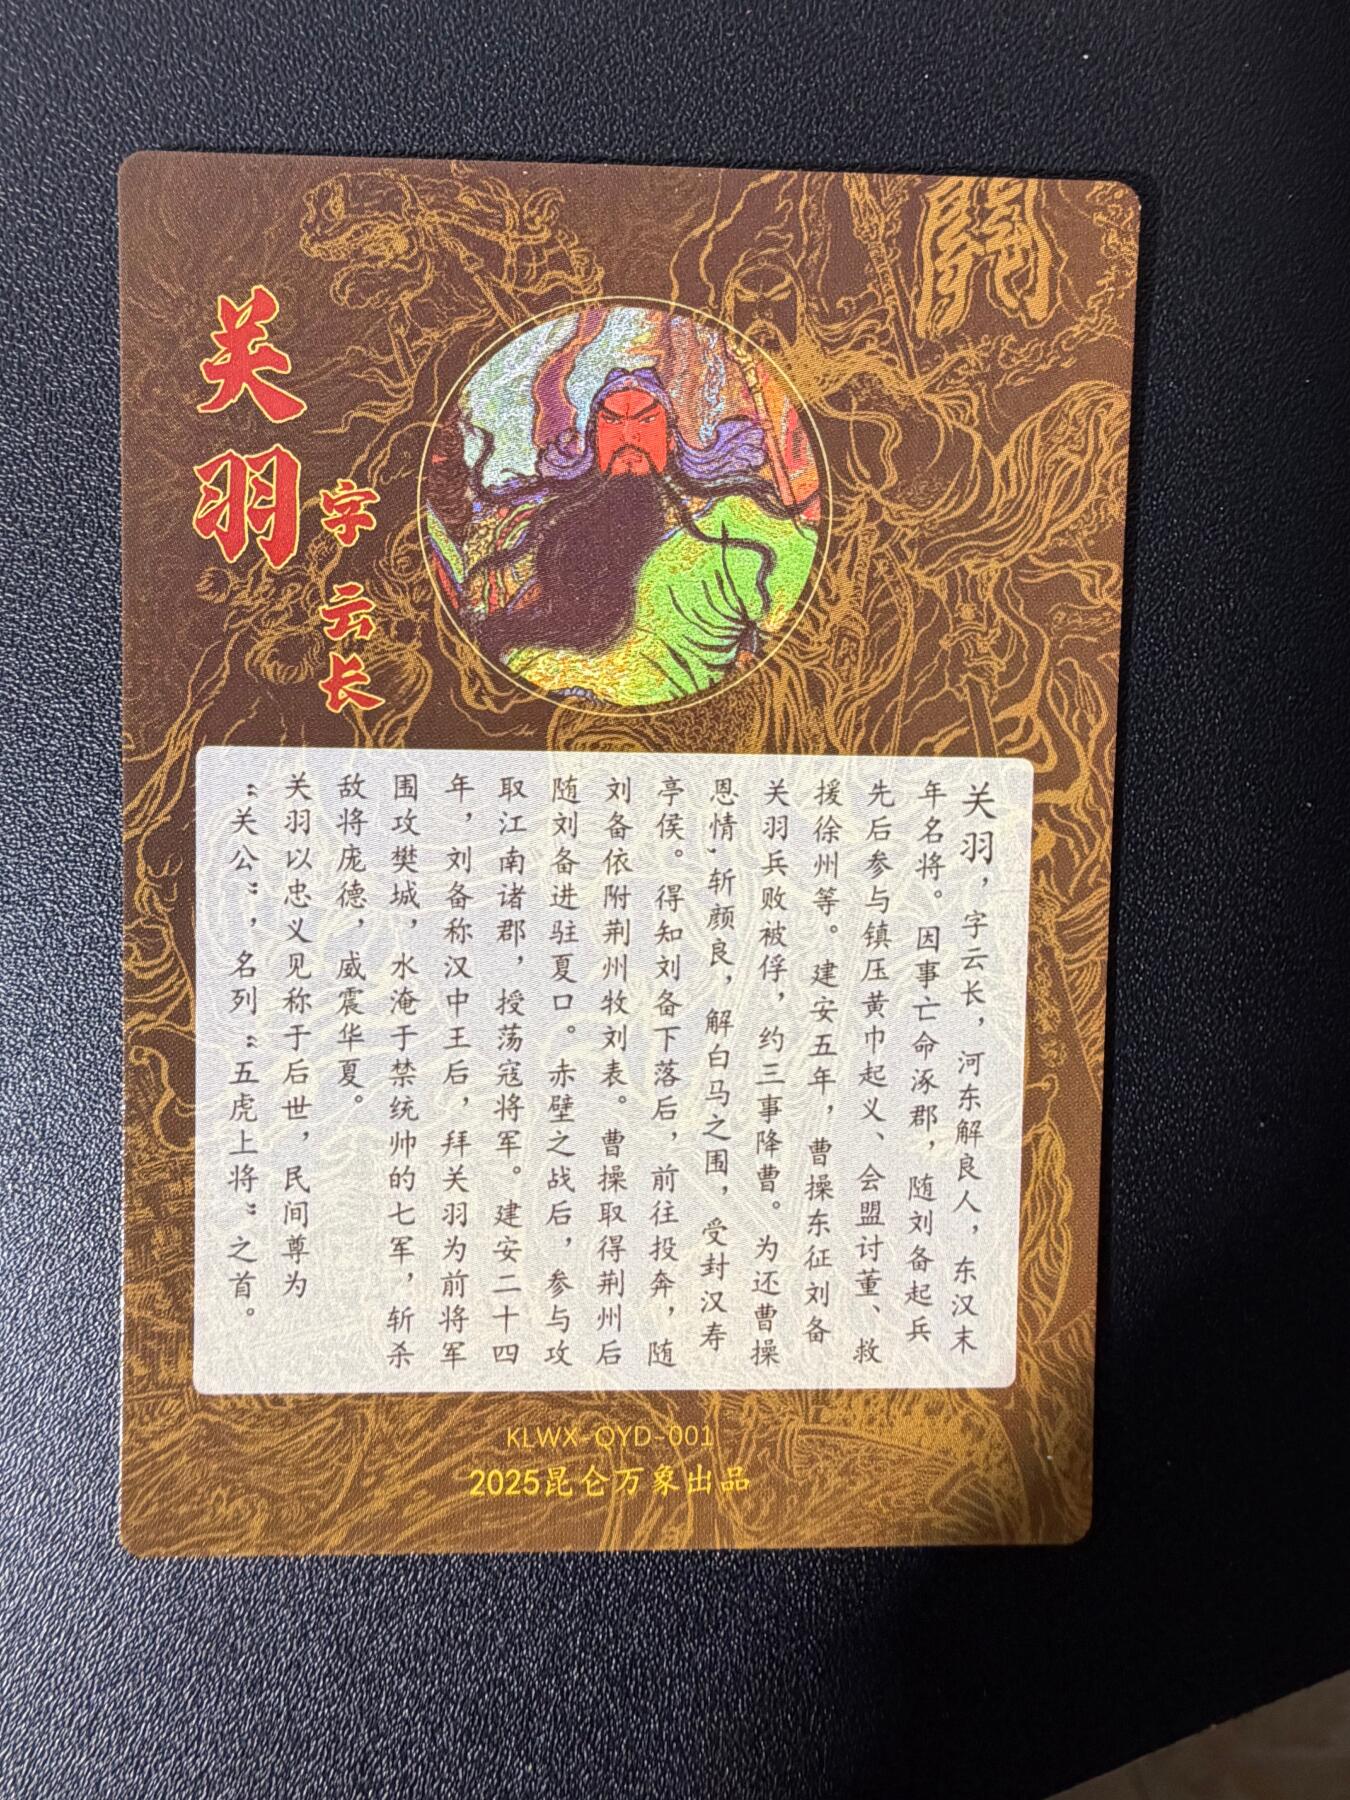 關
关羽
字云长
关羽，字云长，河东解良人，东汉末
年名将。因事亡命涿郡，随刘备起兵
先后参与镇压黄巾起义、会盟讨董、救
援徐州等。建安五年，曹操东征刘备
关羽兵败被俘，约三事降曹。为还曹操
恩情，斩颜良，解白马之围，受封汉寿
亭侯。得知刘备下落后，前往投奔，随
刘备依附荆州牧刘表。曹操取得荆州后
随刘备进驻夏口。赤壁之战后，参与攻
取江南诸郡，授荡寇将军。建安二十四
年，刘备称汉中王后，拜关羽为前将军
围攻樊城，水淹于禁统帅的七军，斩杀
敌将庞德，威震华夏。
关羽以忠义见称于后世，民间尊为
“关公”，名列“五虎上将”之首。
KLWX-QYD-001
2025昆仑万象出品